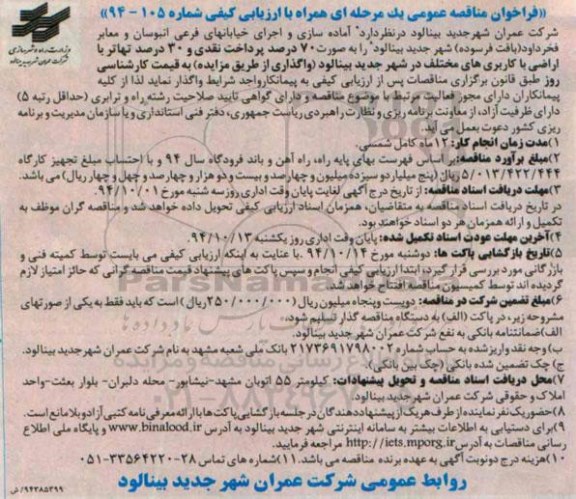 «فراخوان مناقصه عمومی یک مرحله ای همراه با ارزیابی کیفی شماره ۱۰۵ - ۹۴»
وزارت راه و شهرسازی
شرکت عمران شهر جدید بینالود
شرکت عمران شهرجدید بینالود درنظردارد" آماده سازی و اجرای خیابانهای فرعی اتبوسان و معابر
فخرداود(بافت فرسوده) شهر جدید بینالود" را به صورت ۷۰ درصد پرداخت نقدی و ۳۰ درصد تهاتر با
اراضی با کاربری های مختلف در شهر جدید بینالود (واگذاری از طریق مزایده) به قیمت کارشناسی
روز طبق قانون برگزاری مناقصات پس از ارزیابی کیفی به پیمانکارواجد شرایط واگذار نماید لذا از کلیه
پیمانکاران دارای مجوز فعالیت مرتبط با موضوع مناقصه و دارای گواهی تایید صلاحیت رشته راه و ترابری (حداقل رتبه ۵)
دارای ظرفیت آزاد، از معاونت برنامه ریزی و نظارت راهبردی ریاست جمهوری، دفتر فنی استانداری و یا سازمان مدیریت و برنامه
ریزی کشور دعوت بعمل می آید.
۱)مدت زمان انجام کار: ۱۲ ماه کامل شمسی.
۲)مبلغ برآورد مناقصه: بر اساس فهرست بهای پایه راه، راه آهن و باند فرودگاه سال ۹۴ و با احتساب مبلغ تجهیز کارگاه
۵/۰۱۳/۴۲۲/۴۴۴ ریال (پنج میلیارد و سیزده میلیون و چهارصد و بیست و دو هزار و چهارصد و چهل و چهار ریال) می باشد.
۳)مهلت دریافت اسناد مناقصه: از تاریخ درج آگهی لغایت پایان وقت اداری روز سه شنبه مورخ ۹۴/۱۰/۰۱.
در تاریخ دریافت اسناد مناقصه به متقاضیان، همزمان اسناد ارزیابی کیفی تحویل داده خواهد شد و مناقصه گران موظف به
تکمیل و ارائه همزمان هر دو اسناد خواهند بود.
۴)آخرین مهلت عودت اسناد تکمیل شده: پایان وقت اداری روز یکشنبه ۹۴/۱۰/۱۳.
۵)تاریخ بازگشایی پاکت ها: دوشنبه مورخ ۹۴/۱۰/۱۴. با عنایت به اینکه ارزیابی کیفی می بایست توسط کمیته فنی و
بازرگانی مورد بررسی قرار گیرد، ابتدا ارزیابی کیفی انجام و سپس پاکت های پیشنهاد قیمت مناقصه گرانی که حائز امتیاز لازم
گردیده اند توسط کمیسیون مناقصه افتتاح خواهد شد.
۶)مبلغ تضمین شرکت در مناقصه: دویست وپنجاه میلیون ریال (۲۵۰/۰۰۰/۰۰۰ ریال) است که باید فقط به یکی از صورتهای
مشروحه زیر، در پاکت (الف) به دستگاه مناقصه گذار تسلیم شود.
الف)ضمانتنامه بانکی به نفع شرکت عمران شهر جدید بینالود.
ب) وجه نقد واریز شده به حساب شماره ۲۱۷۳۶۹۱۷۹۸۰۰۲ بانک ملی شعبه مشهد به نام شرکت عمران شهرجدید بینالود.
ج) چک تضمین شده بانکی (چک بین بانکی).
۷)محل دریافت اسناد مناقصه و تحویل پیشنهادات: کیلومتر ۵۵ اتوبان مشهد-نیشابور- محله دلبران- بلوار بعثت-واحد
املاک و حقوقی شرکت عمران شهرجدید بینالود.
۸)حضور یک نفر نماینده از طرف هر یک از پیشنهاد دهندگان در جلسه بازگشایی پاکت ها با ارائه معرفی نامه کتبی آزاد و بلامانع است.
۹)برای دستیابی به اطلاعات بیشتر به سامانه اینترنتی شهر جدید بینالود به آدرس www.binalood.ir و پایگاه ملی اطلاع
رسانی مناقصات به آدرس http://iets.mporg.ir مراجعه فرمایید.
۱۰)هزینه درج دونوبت آگهی به عهده برنده مناقصه می باشد. ۱۱)شماره های تماس ۲۸-۳۳۵۶۴۲۲۰-۰۵۱
روابط عمومی شرکت عمران شهر جدید بینالود
۹۴۳۸۵۳۹۹/ش
ParsNamadData
۰۲۱-۸۸۳۴۹۶۷۰